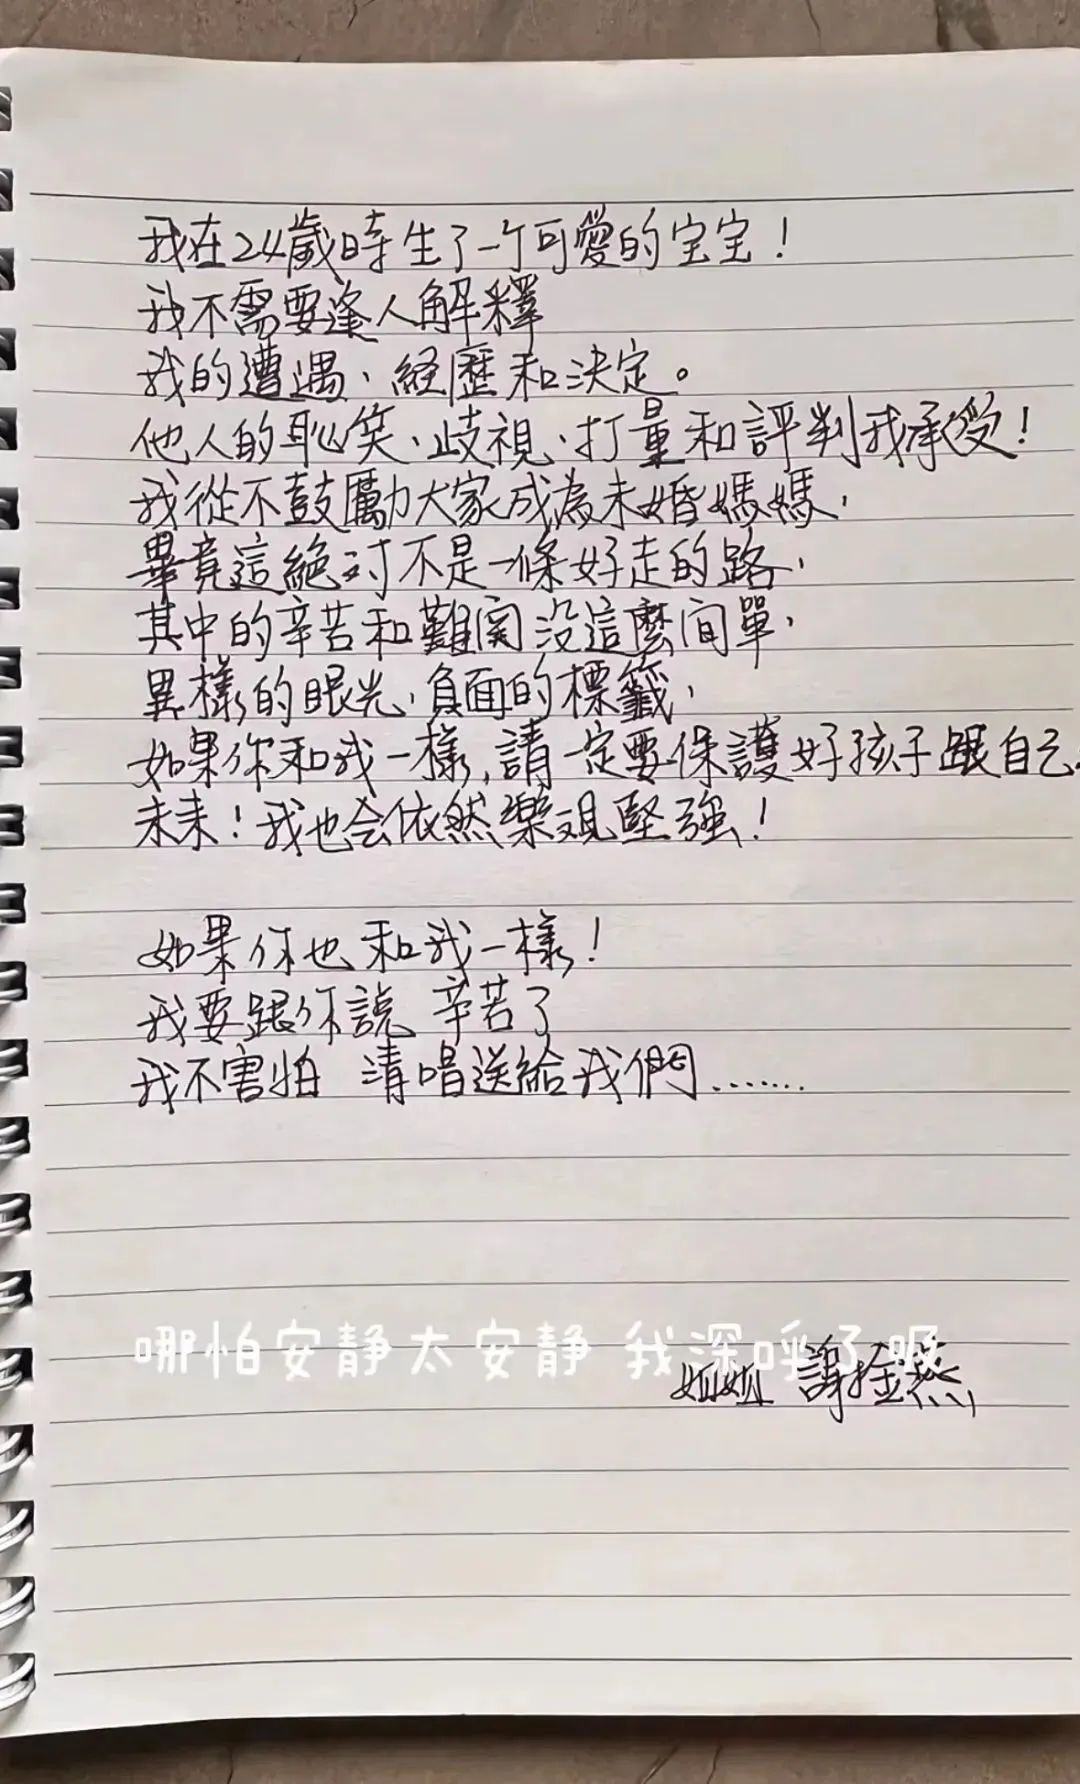 我在24歲時生了一个可愛的宝宝！
我不需要逢人解釋
我的遭遇、経歷和決定。
他人的恥笑、歧視、打量和評判我承受！
我從不鼓勵大家成為未婚媽媽，
畢竟這絕对不是一條好走的路，
其中的辛苦和難関没這麼间單，
異樣的眼光、負面的標籤，
如果你和我一樣，請一定要保護好孩子跟自己.
未来！我也会依然樂观堅強！
如果你也和我一樣！
我要跟你說 辛苦了
我不害怕 清唱送給我們.......
哪怕安静太安静 我深呼了吸
姐姐 謝金燕